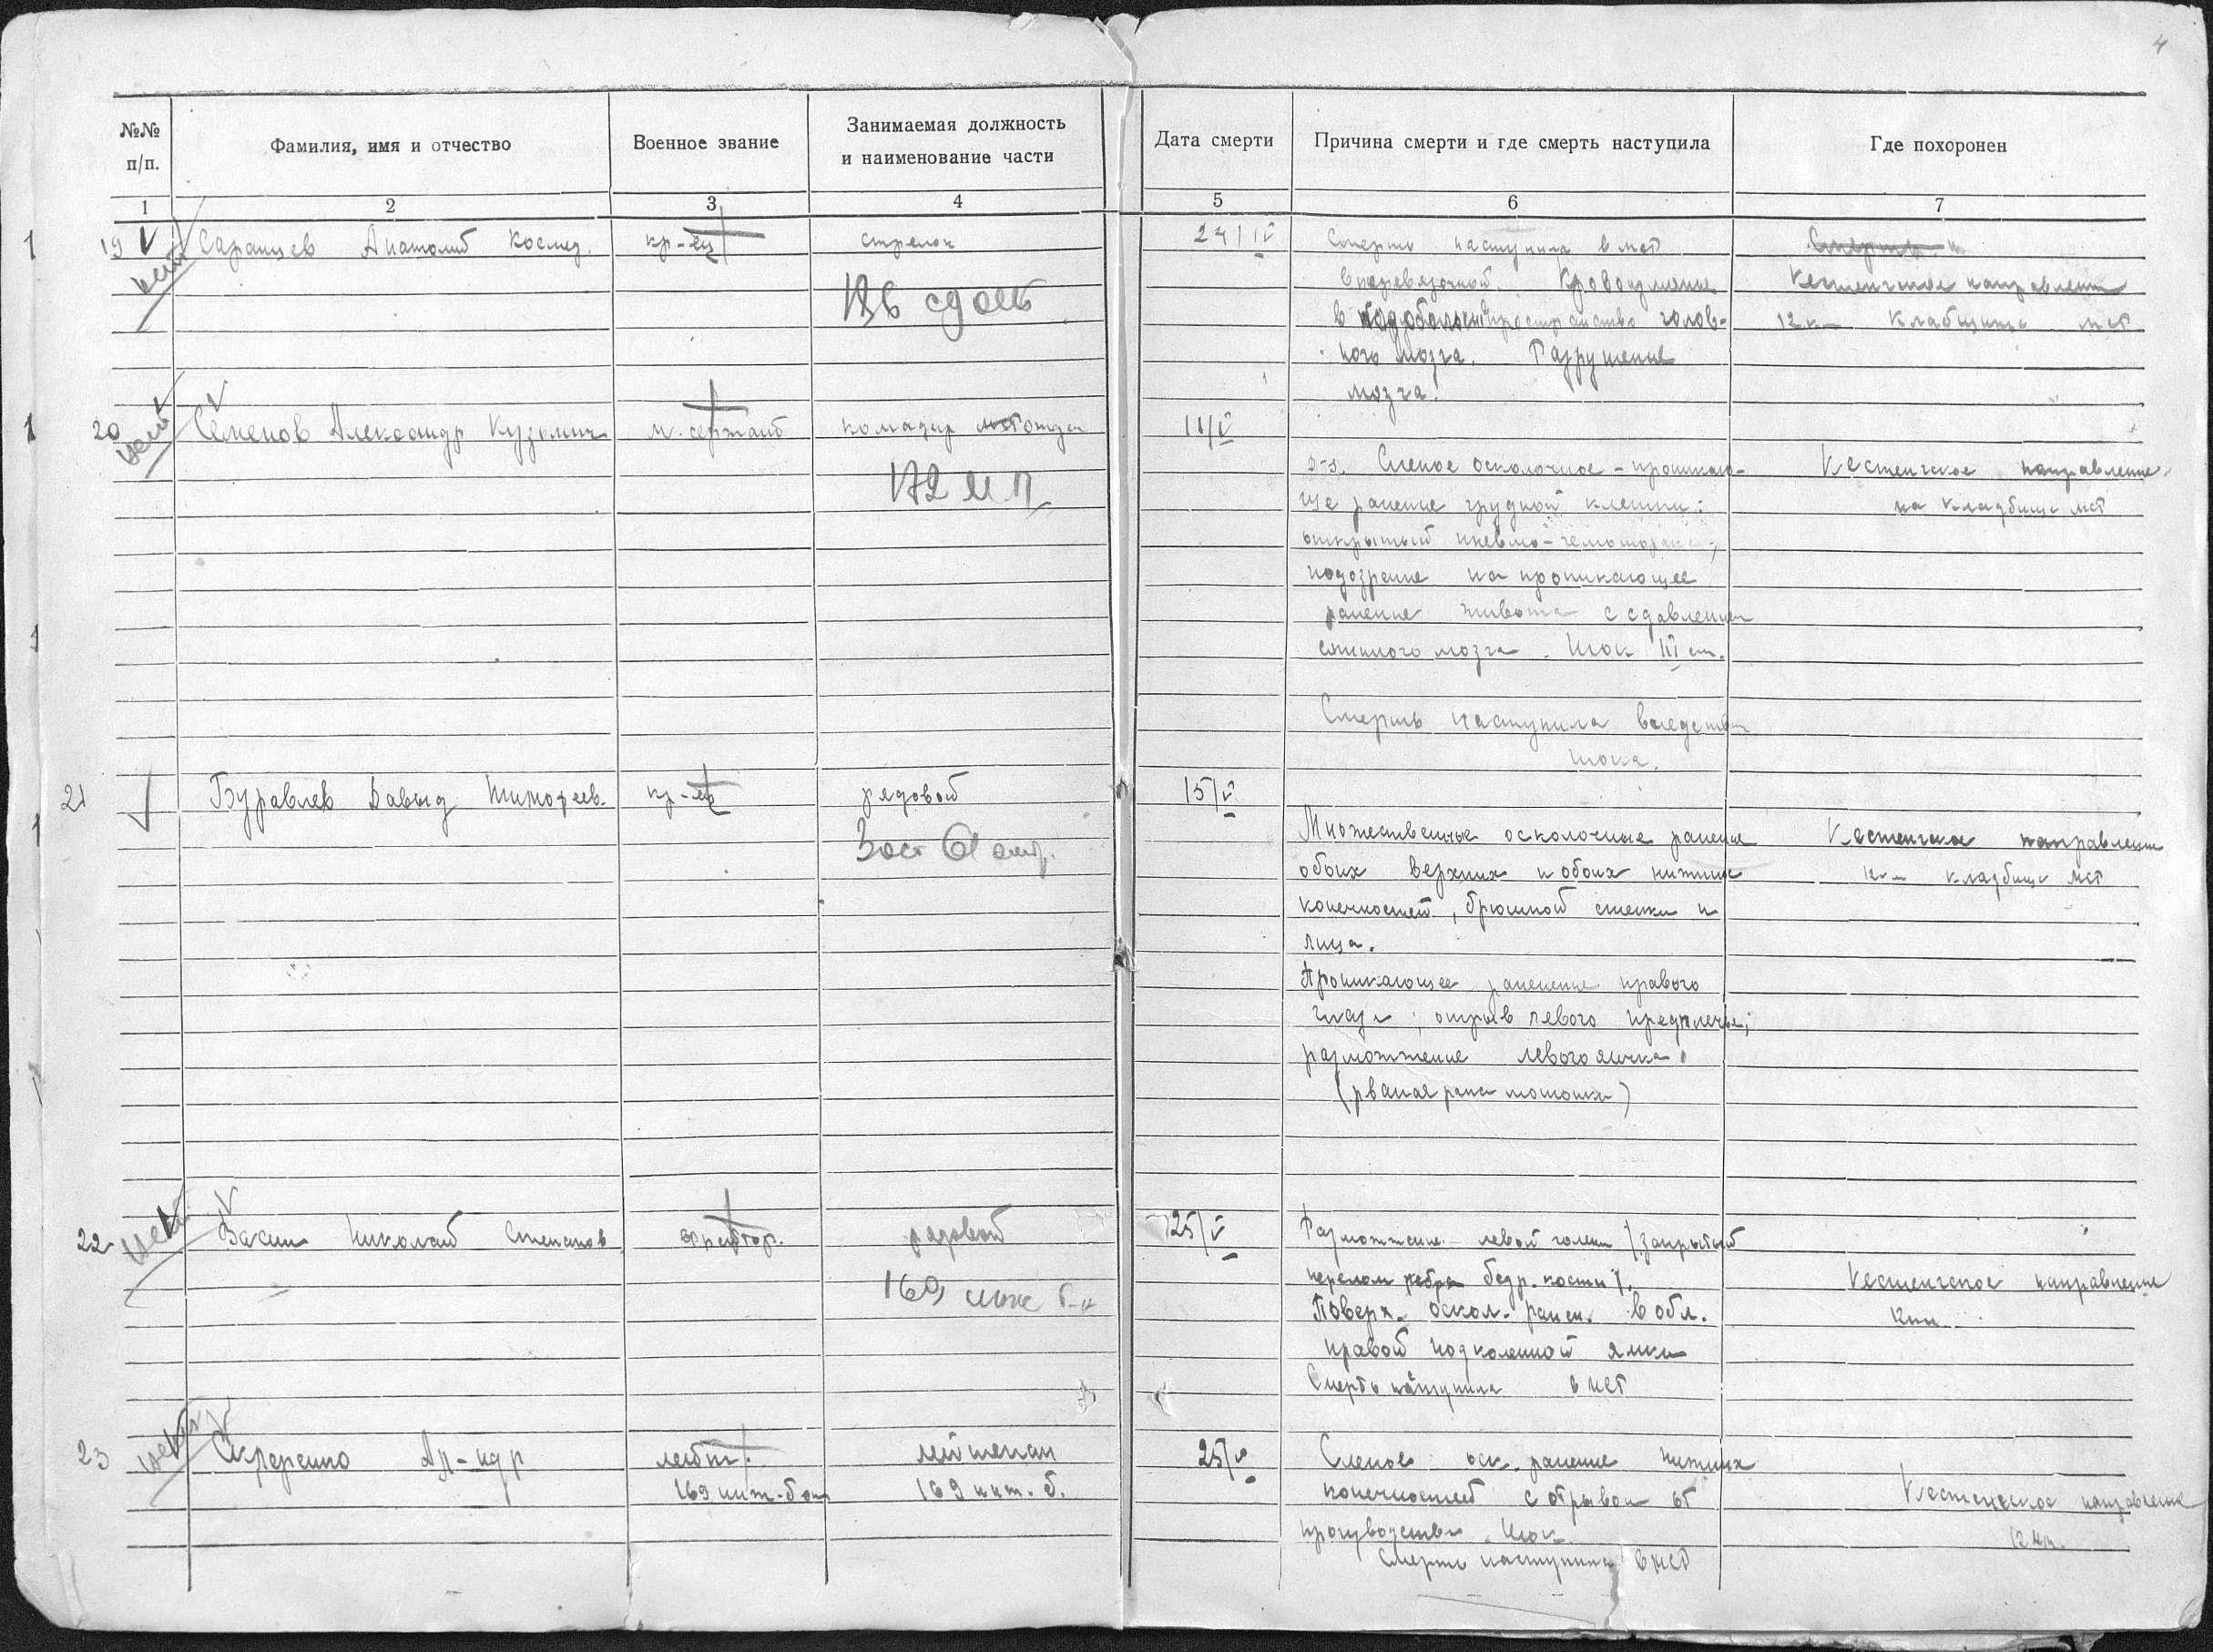 4
№№ п/п.
Фамилия, имя и отчество
Военное звание
Занимаемая должность
и наименование части
Дата смерти
Причина смерти и где смерть наступила
Где похоронен
1 2 3 4 5 6 7
19 Саранцев Анатолий Космед. кр-ец стрелок 24/IV Смерть наступила в мсб
нет
в перевязочной. Кровоизлияние Кестенгское направление
в пространство голов- 12 км кладбище мсб
ного мозга. Разрушение
мозга.
20 Семенов Александр Кузьмич м. сержант командир 11/V
нет
172 М.П.
Слепое осколочное - проникаю- Кестенгское направление
ще ранение грудной клетки: на кладбище мсб
открытый пневмо-гемоторакс;
подозрение на проникающее
ранение живота с сдавлением
спинного мозга. Шок III ст.
Смерть наступила вследствии
шока.
21 Буравлев Давыд Тимофеев. кр-ец рядовой 15/V
Множественные осколочные ранения Кестенгское направление
обоих верхних и обоих нижних 12 км кладбище мсб
конечностей, брюшной стенки и
лица.
Проникающее ранение правого
глаза; отрыв левого предплечья;
размозжение левого яичка.
(рваная рана мошонки)
22 Васин Николай Степанов ефрейтор. рядовой 25/V Размозжение левой голени (закрытый
нет
169 инж б-н
перелом бедр. кости). Кестенгское направление
Поверх. оскол. ранен. в обл. 12 км
правой подколенной ямки
Смерть наступила в мсб
23 Ал-ндр лейт. лейтенант 25/V Слепое оск. ранение нижних
нет
169 инж. бат 169 инж. б. конечностей с отрывом от Кестенгское направление
Шок. 12 км.
Смерть наступила в мсб